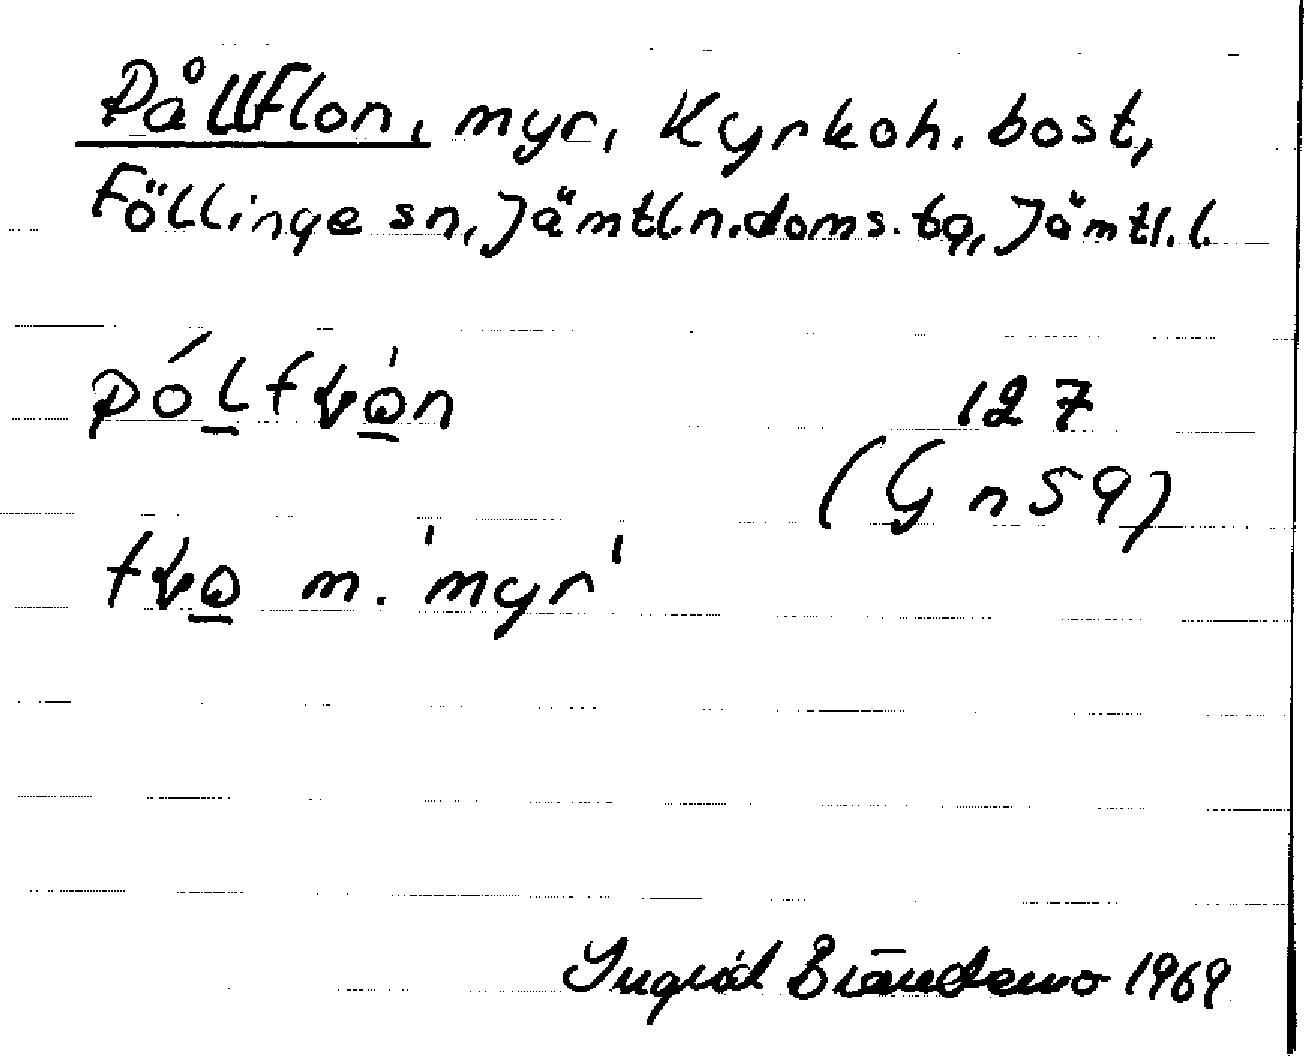 Pållflon, myr, Kyrkoh. bost,
Föllinge sn, Jämtl.n.doms.tg, Jämtl.l.
pó̲lfɫò̲n
127
(Gn59)
fɫo̲ m. 'myr'
Ingrid Brändemo 1969